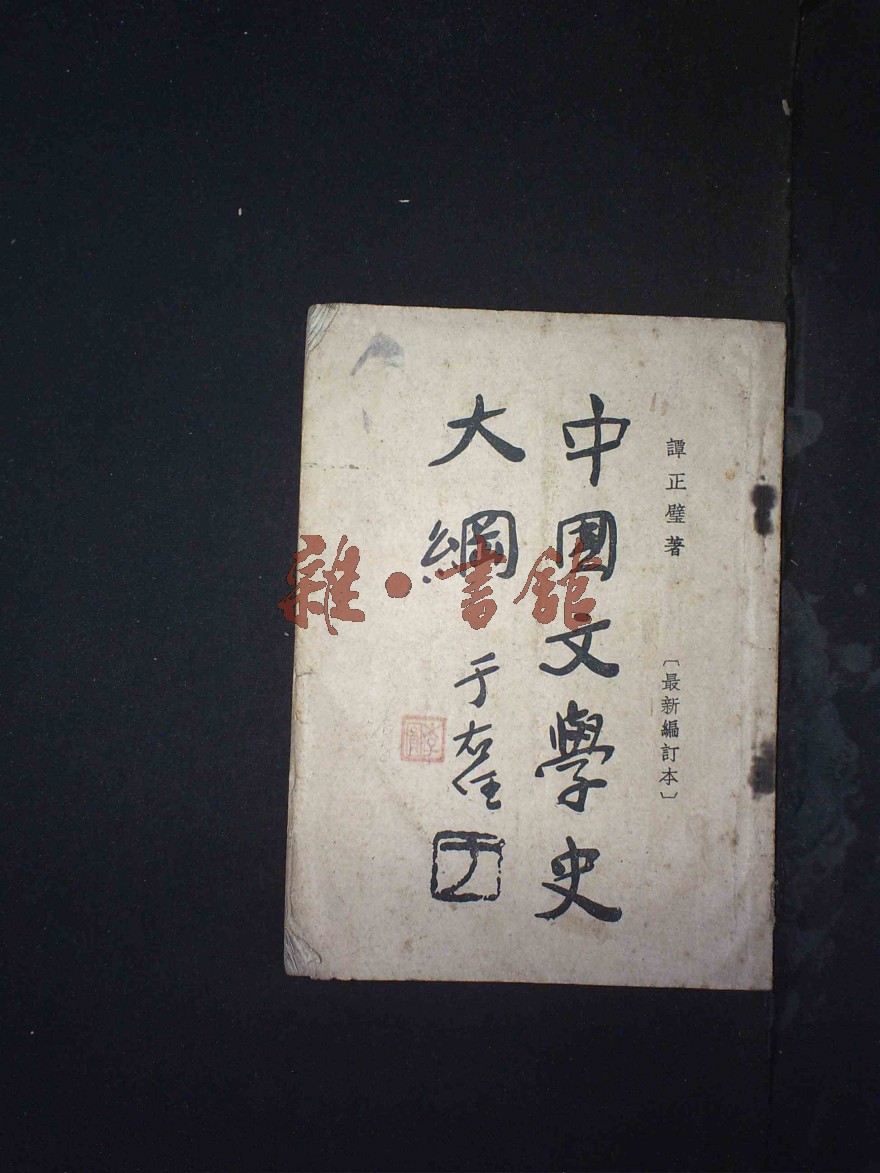 譚正璧著
〔最新編訂本〕
中国文學史
大綱
于右任
雜·書館